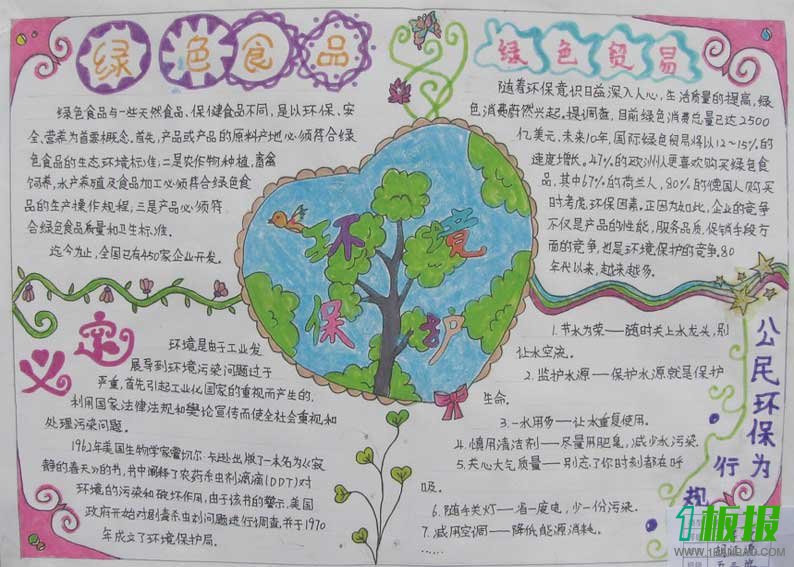 绿色食品
绿色食品与一些天然食品、保健食品不同,是以环保、安
全、营养为首要概念。首先,产品或产品的原料产地必须符合绿
色食品的生态环境标准,二是农作物种植,畜禽
饲养,水产养殖及食品加工必须符合绿色食
品的生产操作规程,三是产品必须符
合绿色食品质量和卫生标准。
迄今为止,全国已有450家企业开发。
绿色贸易
随着环保意识日益深入人心,生活质量的提高,绿
色消费蔚然兴起。据调查,目前绿色消费总量已达2500
亿美元,未来10年,国际绿色贸易将以12~15%的
速度增长。47%的欧洲人更喜欢购买绿色食
品,其中67%的荷兰人,80%的德国人购买
时考虑环保因素。正因为如此,企业的竞争
不仅是产品的性能,服务品质,促销手段方
面的竞争,也是环境保护的竞争。80
年代以来,越来越多。
环境
保护
环境是由于工业发
展导到环境污染问题过于
严重,首先引起工业化国家的重视而产生的,
利用国家法律法规和舆论宣传而使全社会重视和
处理污染问题。
1962年美国生物学家蕾切尔·卡逊出版了一本名为《寂
静的春天》的书,书中阐释了农药杀虫剂滴滴(DDT)对
环境的污染和破坏作用,由于该书的警示,美国
政府开始对剧毒杀虫剂问题进行调查,并于1970
年成立了环境保护局。
公民环保行为
规
1.节水为荣——随时关上水龙头,别
让水空流。
2.监护水源——保护水源就是保护
生命。
3.一水用多——让水重复使用。
4.慎用清洁剂——尽量用肥皂,减少水污染。
5.关心大气质量——别忘了你时刻都在呼
吸。
6.随手关灯——省一度电,少一份污染。
7.减用空调——降低能源消耗。
......
1板报
WWW.1BANBAO.COM